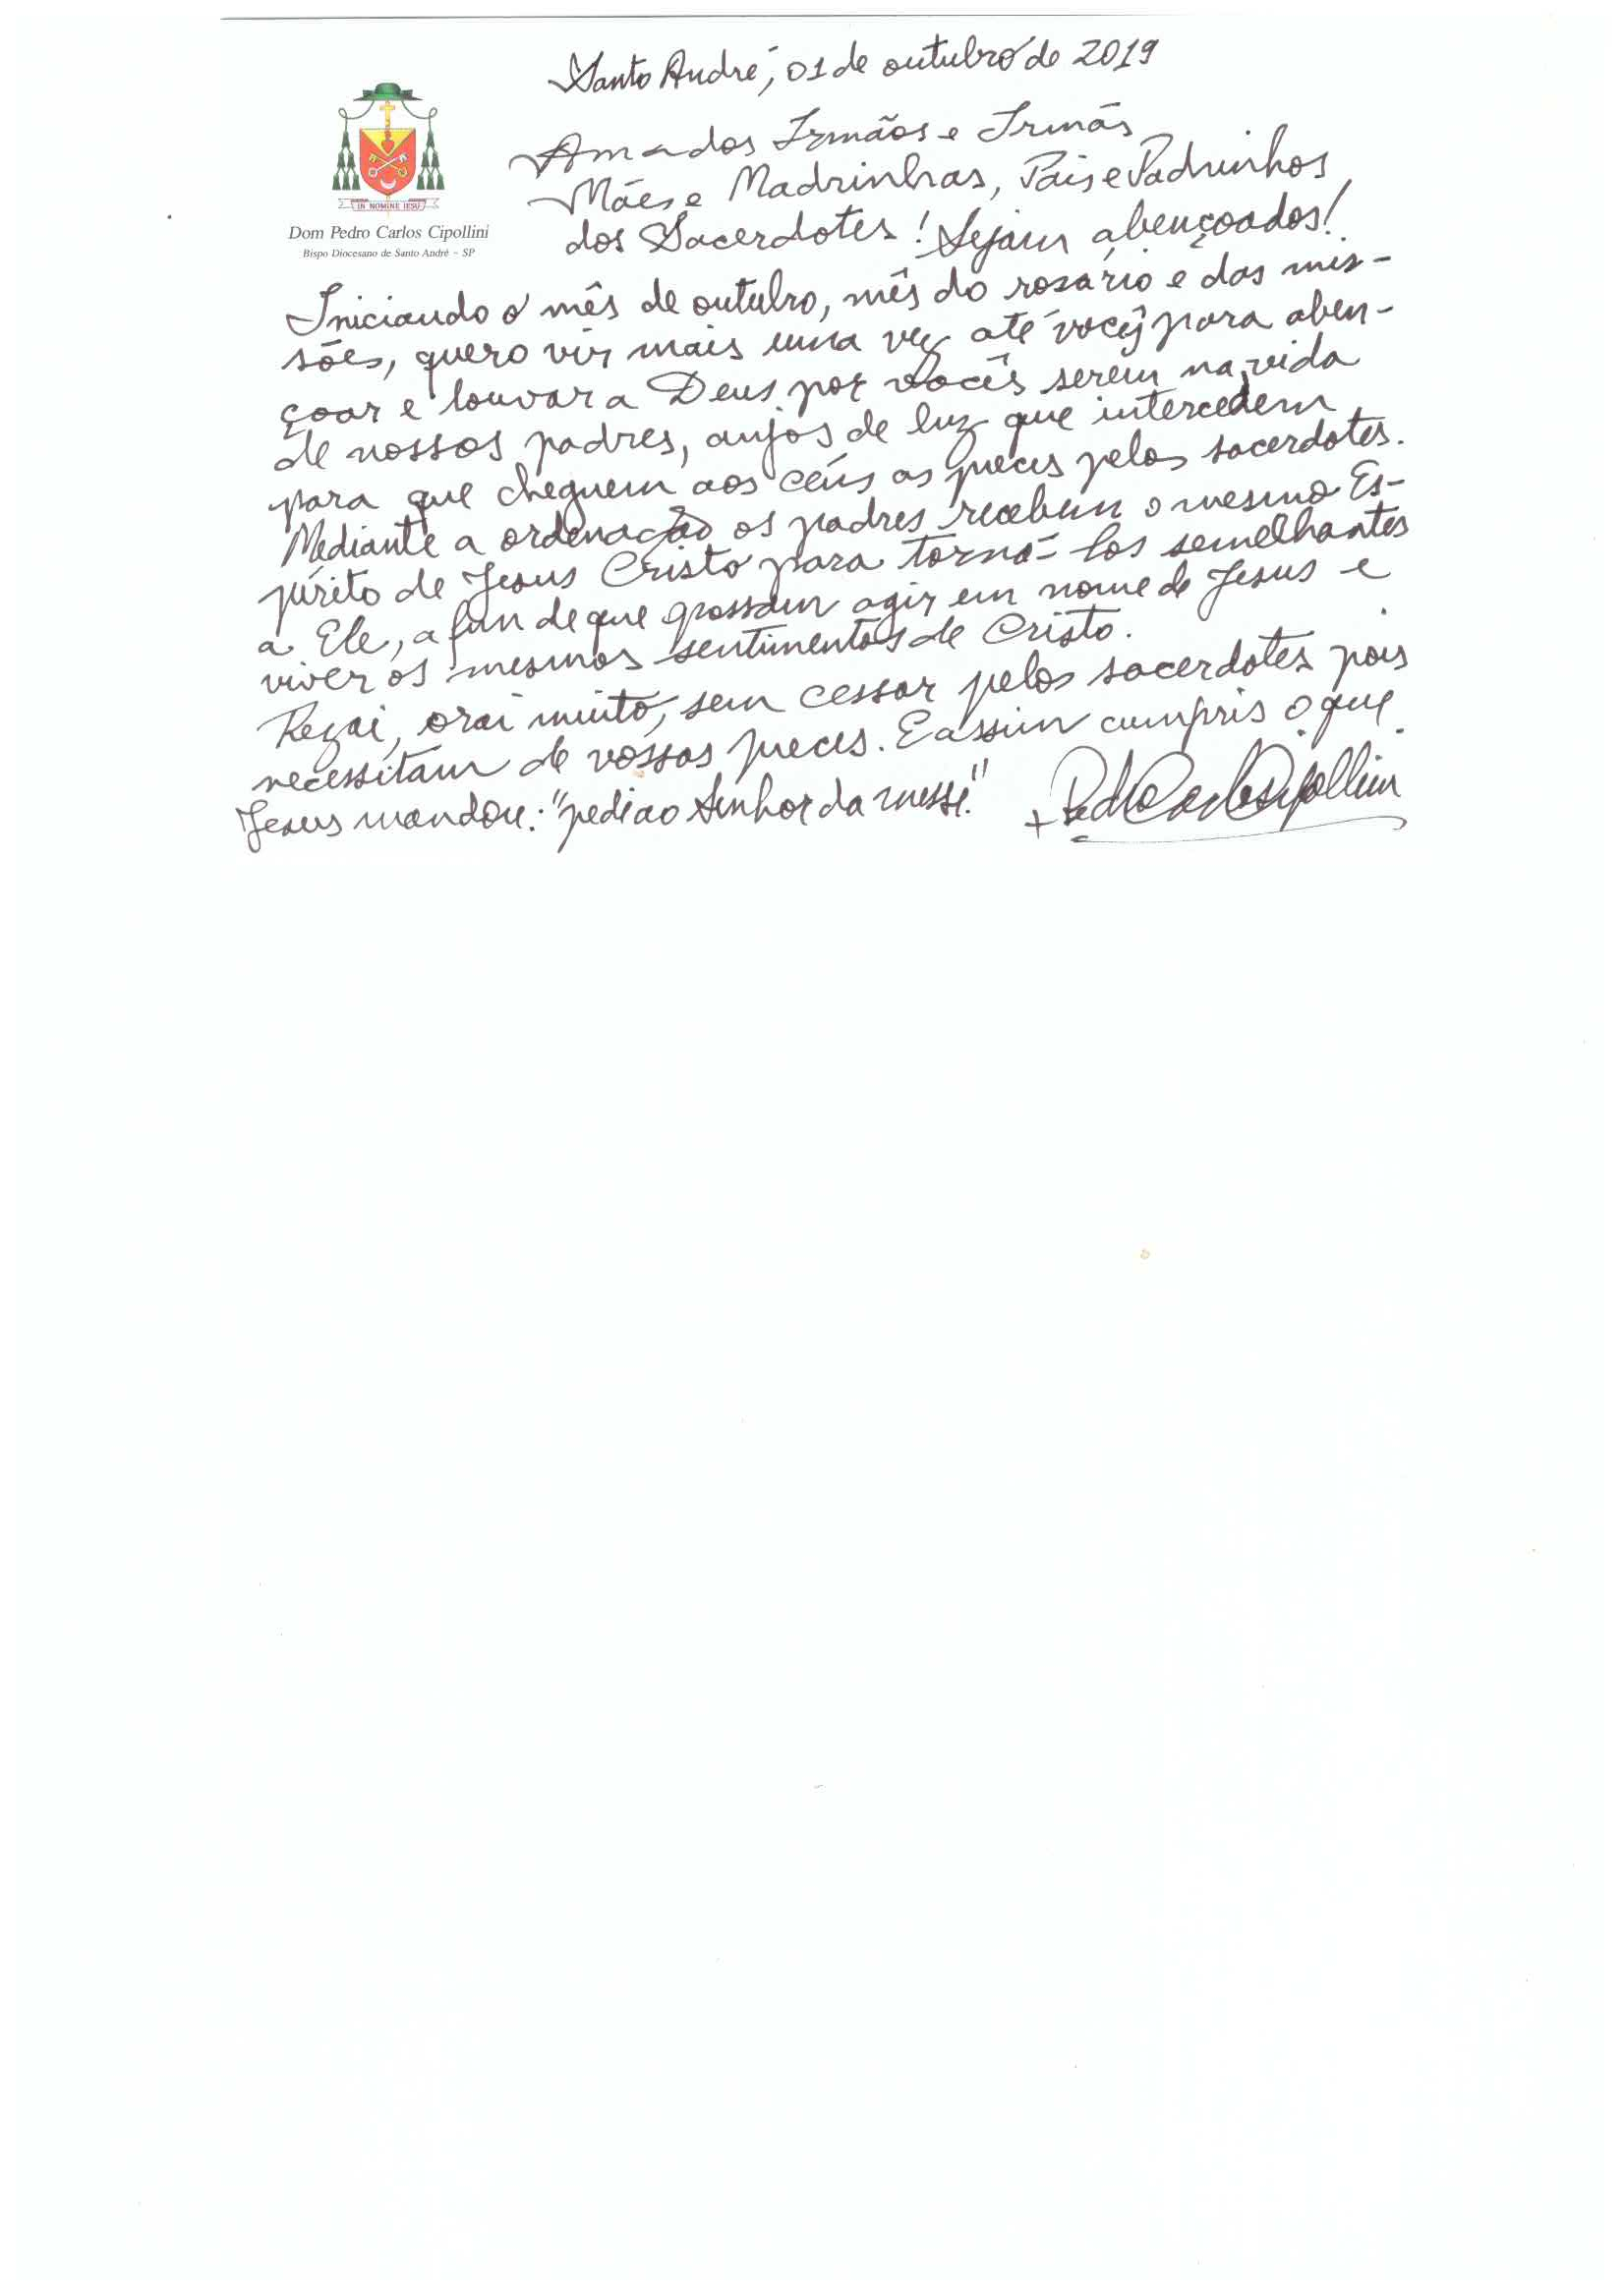 Santo André, 01 de outubro de 2019
IN NOMINE IESU
Dom Pedro Carlos Cipollini
Bispo Diocesano de Santo André - SP
Amados Irmãos e Irmãs
Mães e Madrinhas, Pais e Padrinhos
dos Sacerdotes! Sejam abençoados!
Iniciando o mês de outubro, mês do rosário e das mis-
sões, quero vir mais uma vez até vocês para aben-
çoar e louvar a Deus por vocês serem na vida
de nossos padres, anjos de luz que intercedem
para que cheguem aos céus as preces pelos sacerdotes.
Mediante a ordenação os padres recebem o mesmo Es-
pírito de Jesus Cristo para torná-los semelhantes
a Ele, a fim de que possam agir em nome de Jesus e
viver os mesmos sentimentos de Cristo.
Rezai, orai muito, sem cessar pelos sacerdotes pois
necessitam de vossas preces. E assim cumpris o que
Jesus mandou: "pedi ao Senhor da messe."
+ Pedro Carlos Cipollini